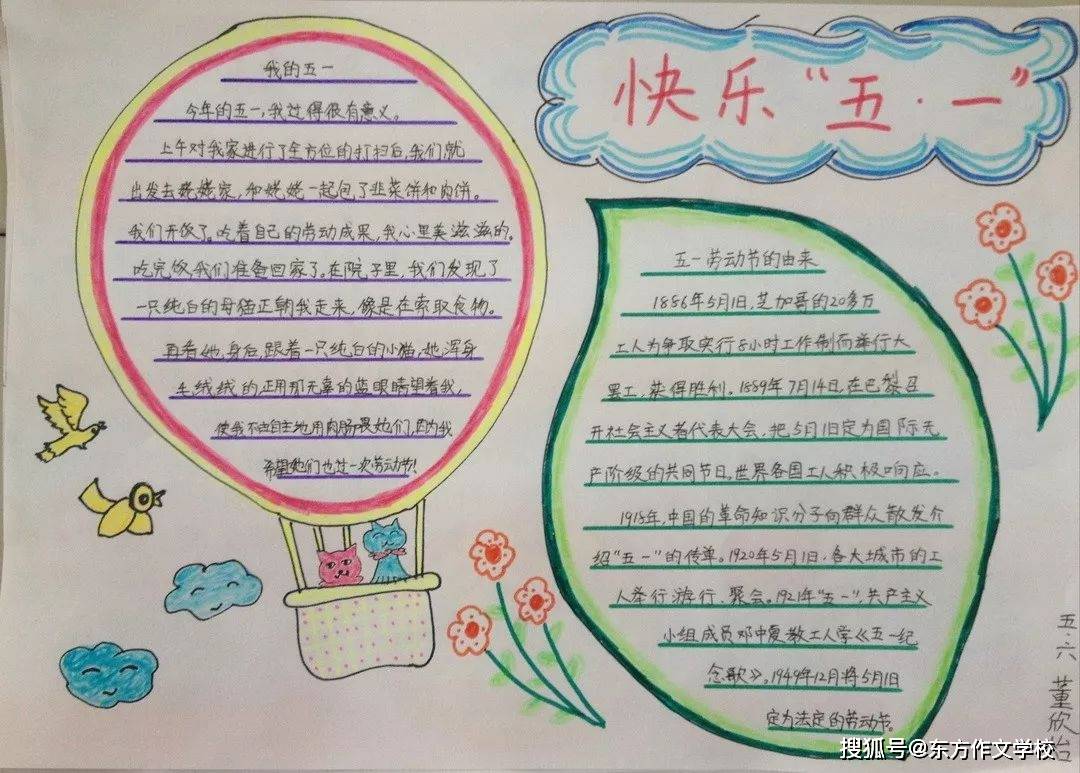 快乐“五·一”
我的五一
今年的五一,我过得很有意义。
上午对我家进行了全方位的打扫后,我们就
出发去姥姥家,和姥姥一起包了韭菜饼和肉饼。
我们开饭了。吃着自己的劳动成果,我心里美滋滋的。
吃完饭,我们准备回家了。在院子里,我们发现了
一只纯白的母猫正朝我走来,像是在索取食物。
再看她,身后,跟着一只纯白的小猫,她浑身
毛绒绒的,正用那无辜的蓝眼睛望着我,
使我不由自主地用肉肠喂她们,因为我
希望她们也过一次劳动节!
五一劳动节的由来
1886年5月1日,芝加哥的20多万
工人为争取实行8小时工作制而举行大
罢工,获得胜利。1889年7月14日,在巴黎召
开社会主义者代表大会,把5月1日定为国际无
产阶级的共同节日。世界各国工人积极响应。
1918年,中国的革命知识分子向群众散发介
绍“五一”的传单。1920年5月1日,各大城市的工
人举行游行、聚会。1921年“五一”,共产主义
小组成员邓中夏教工人学《五一纪
念歌》。1949年12月将5月1日
定为法定的劳动节。
五·六 董欣怡
搜狐号@东方作文学校